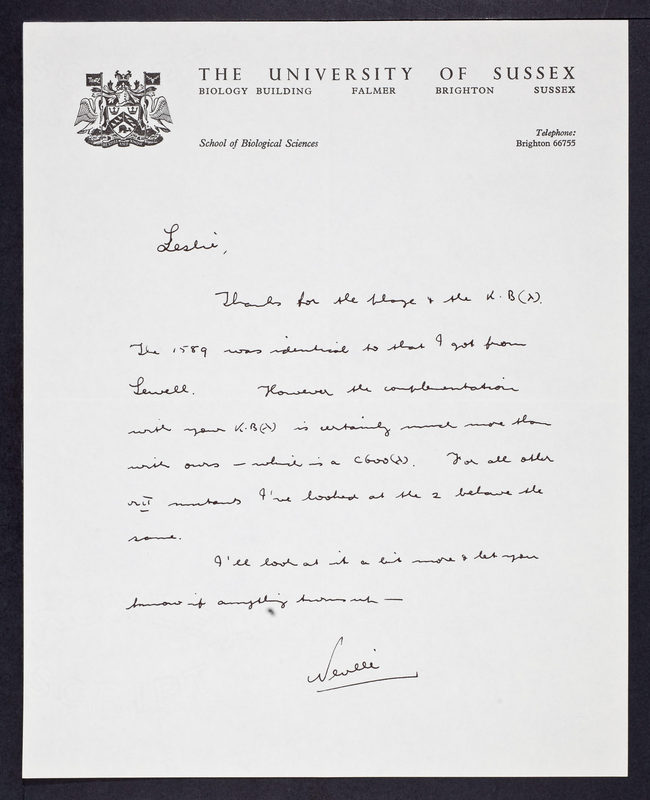 THE UNIVERSITY OF SUSSEX
BIOLOGY BUILDING FALMER BRIGHTON SUSSEX
School of Biological Sciences
Telephone:
Brighton 66755
Leslie,
Thanks for the phage & the K.B(λ).
The 1589 was identical to that I got from
Sewell. However the complementation
with your K.B(λ) is certainly much more than
with ours – which is a C600(λ). For all other
rII mutants I've looked at the 2 behave the
same.
I'll look at it a bit more & let you
know if anything turns up —
Neville